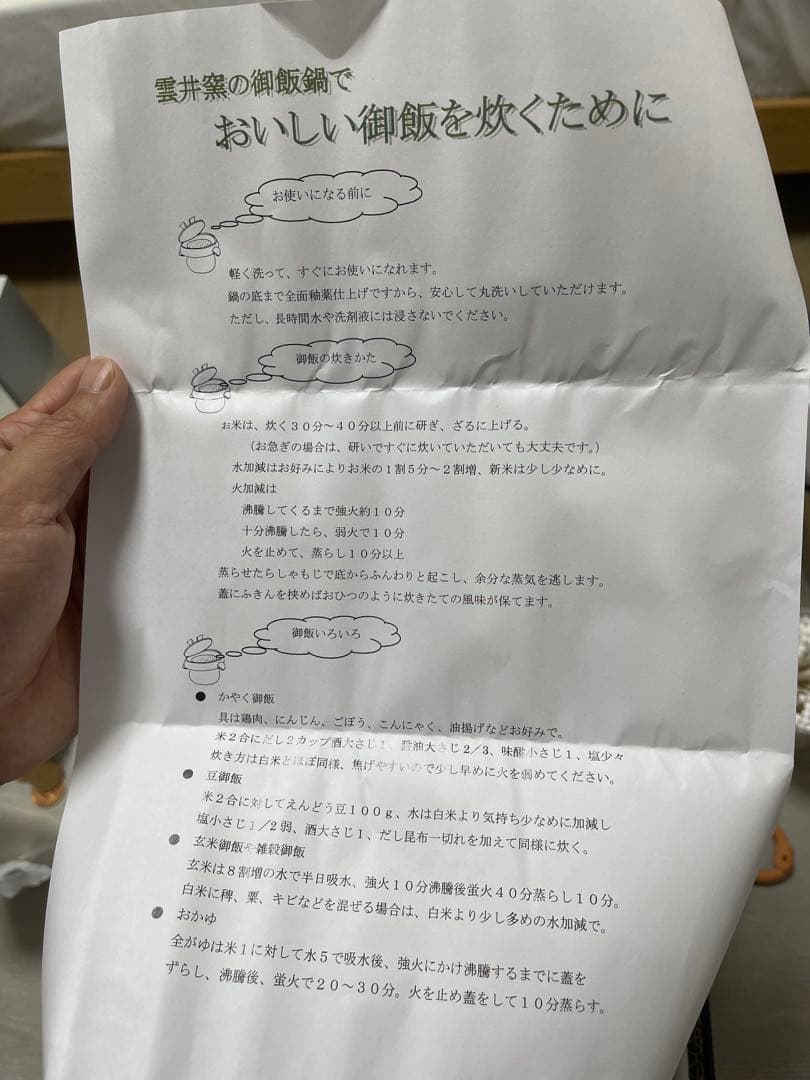 雲井窯の御飯鍋で
おいしい御飯を炊くために
お使いになる前に
軽く洗って、すぐにお使いになれます。
鍋の底まで全面釉薬仕上げですから、安心して丸洗いしていただけます。
ただし、長時間水や洗剤液には浸さないでください。
御飯の炊きかた
お米は、炊く３０分～４０分以上前に研ぎ、ざるに上げる。
（お急ぎの場合は、研いですぐに炊いていただいても大丈夫です。）
水加減はお好みによりお米の１割５分～２割増、新米は少し少なめに。
火加減は
沸騰してくるまで強火約１０分
十分沸騰したら、弱火で１０分
火を止めて、蒸らし１０分以上
蒸らせたらしゃもじで底からふんわりと起こし、余分な蒸気を逃します。
蓋にふきんを挟めばおひつのように炊きたての風味が保てます。
御飯いろいろ
● かやく御飯
具は鶏肉、にんじん、ごぼう、こんにゃく、油揚げなどお好みで。
米２合にだし２カップ酒大さじ１、醤油大さじ２/３、味醂小さじ１、塩少々
炊き方は白米とほぼ同様、焦げやすいので少し早めに火を弱めてください。
● 豆御飯
米２合に対してえんどう豆１００ｇ、水は白米より気持ち少なめに加減し
塩小さじ１/２弱、酒大さじ１、だし昆布一切れを加えて同様に炊く。
● 玄米御飯や雑穀御飯
玄米は８割増の水で半日吸水、強火１０分沸騰後蛍火４０分蒸らし１０分。
白米に稗、粟、キビなどを混ぜる場合は、白米より少し多めの水加減で。
● おかゆ
全がゆは米１に対して水５で吸水後、強火にかけ沸騰するまでに蓋を
ずらし、沸騰後、蛍火で２０～３０分。火を止め蓋をして１０分蒸らす。